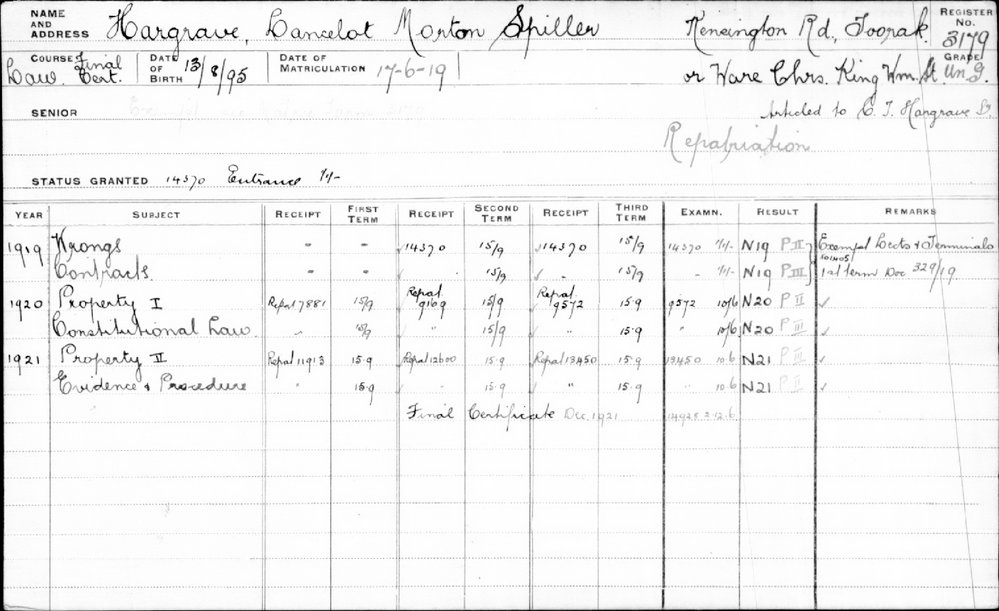 NAME AND ADDRESS Hargrave, Lancelot Morton Spiller Kensington Rd, Toorak. REGISTER No. 3179
COURSE Law. Final Cert. DATE OF BIRTH 13/8/95 DATE OF MATRICULATION 17-6-19 or Ware Chrs. King Wm. St. GRADE Un. G.
SENIOR Articled to C. T. Hargrave
Repatriation
STATUS GRANTED 14370 Entrance 1/1/-
YEAR SUBJECT RECEIPT FIRST TERM RECEIPT SECOND TERM RECEIPT THIRD TERM EXAMN. RESULT REMARKS
1919 Wrongs " " 14370 15/9 14370 15/9 14370 1/1/- N19 P II Exempt Lects & Terminals
Contracts " " " 15/9 " 15/9 " 1/1/- N19 P III 1st term Doc 329/19
1920 Property I Repat 7881 15/9 Repat 9169 15/9 Repat 9572 15.9 9572 10/6 N20 P II ✓
Constitutional Law " 15/9 " 15/9 " 15.9 " 10/6 N20 P III ✓
1921 Property II Repat 11913 15.9 Repat 12600 15.9 Repat 13450 15.9 13450 10.6 N21 P III ✓
Evidence & Procedure " 15.9 " 15.9 " 15.9 " 10.6 N21 P II ✓
Final Certificate Dec. 1921 14928 2.12.6